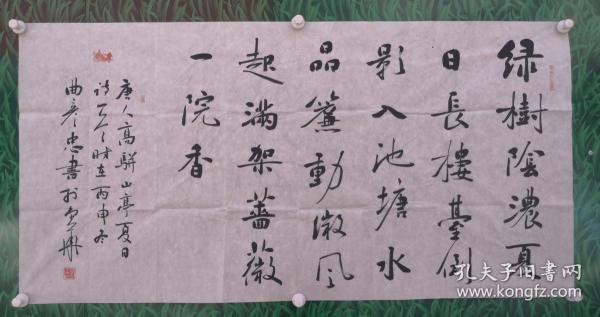 绿樹陰濃夏
日長樓臺倒
影入池塘水
晶簾動微风
起满架蔷薇
一院香
唐人高駢山亭夏日
诗一首时在丙申冬
曲彦忠書於
孔夫子旧書网
www.kongfz.com